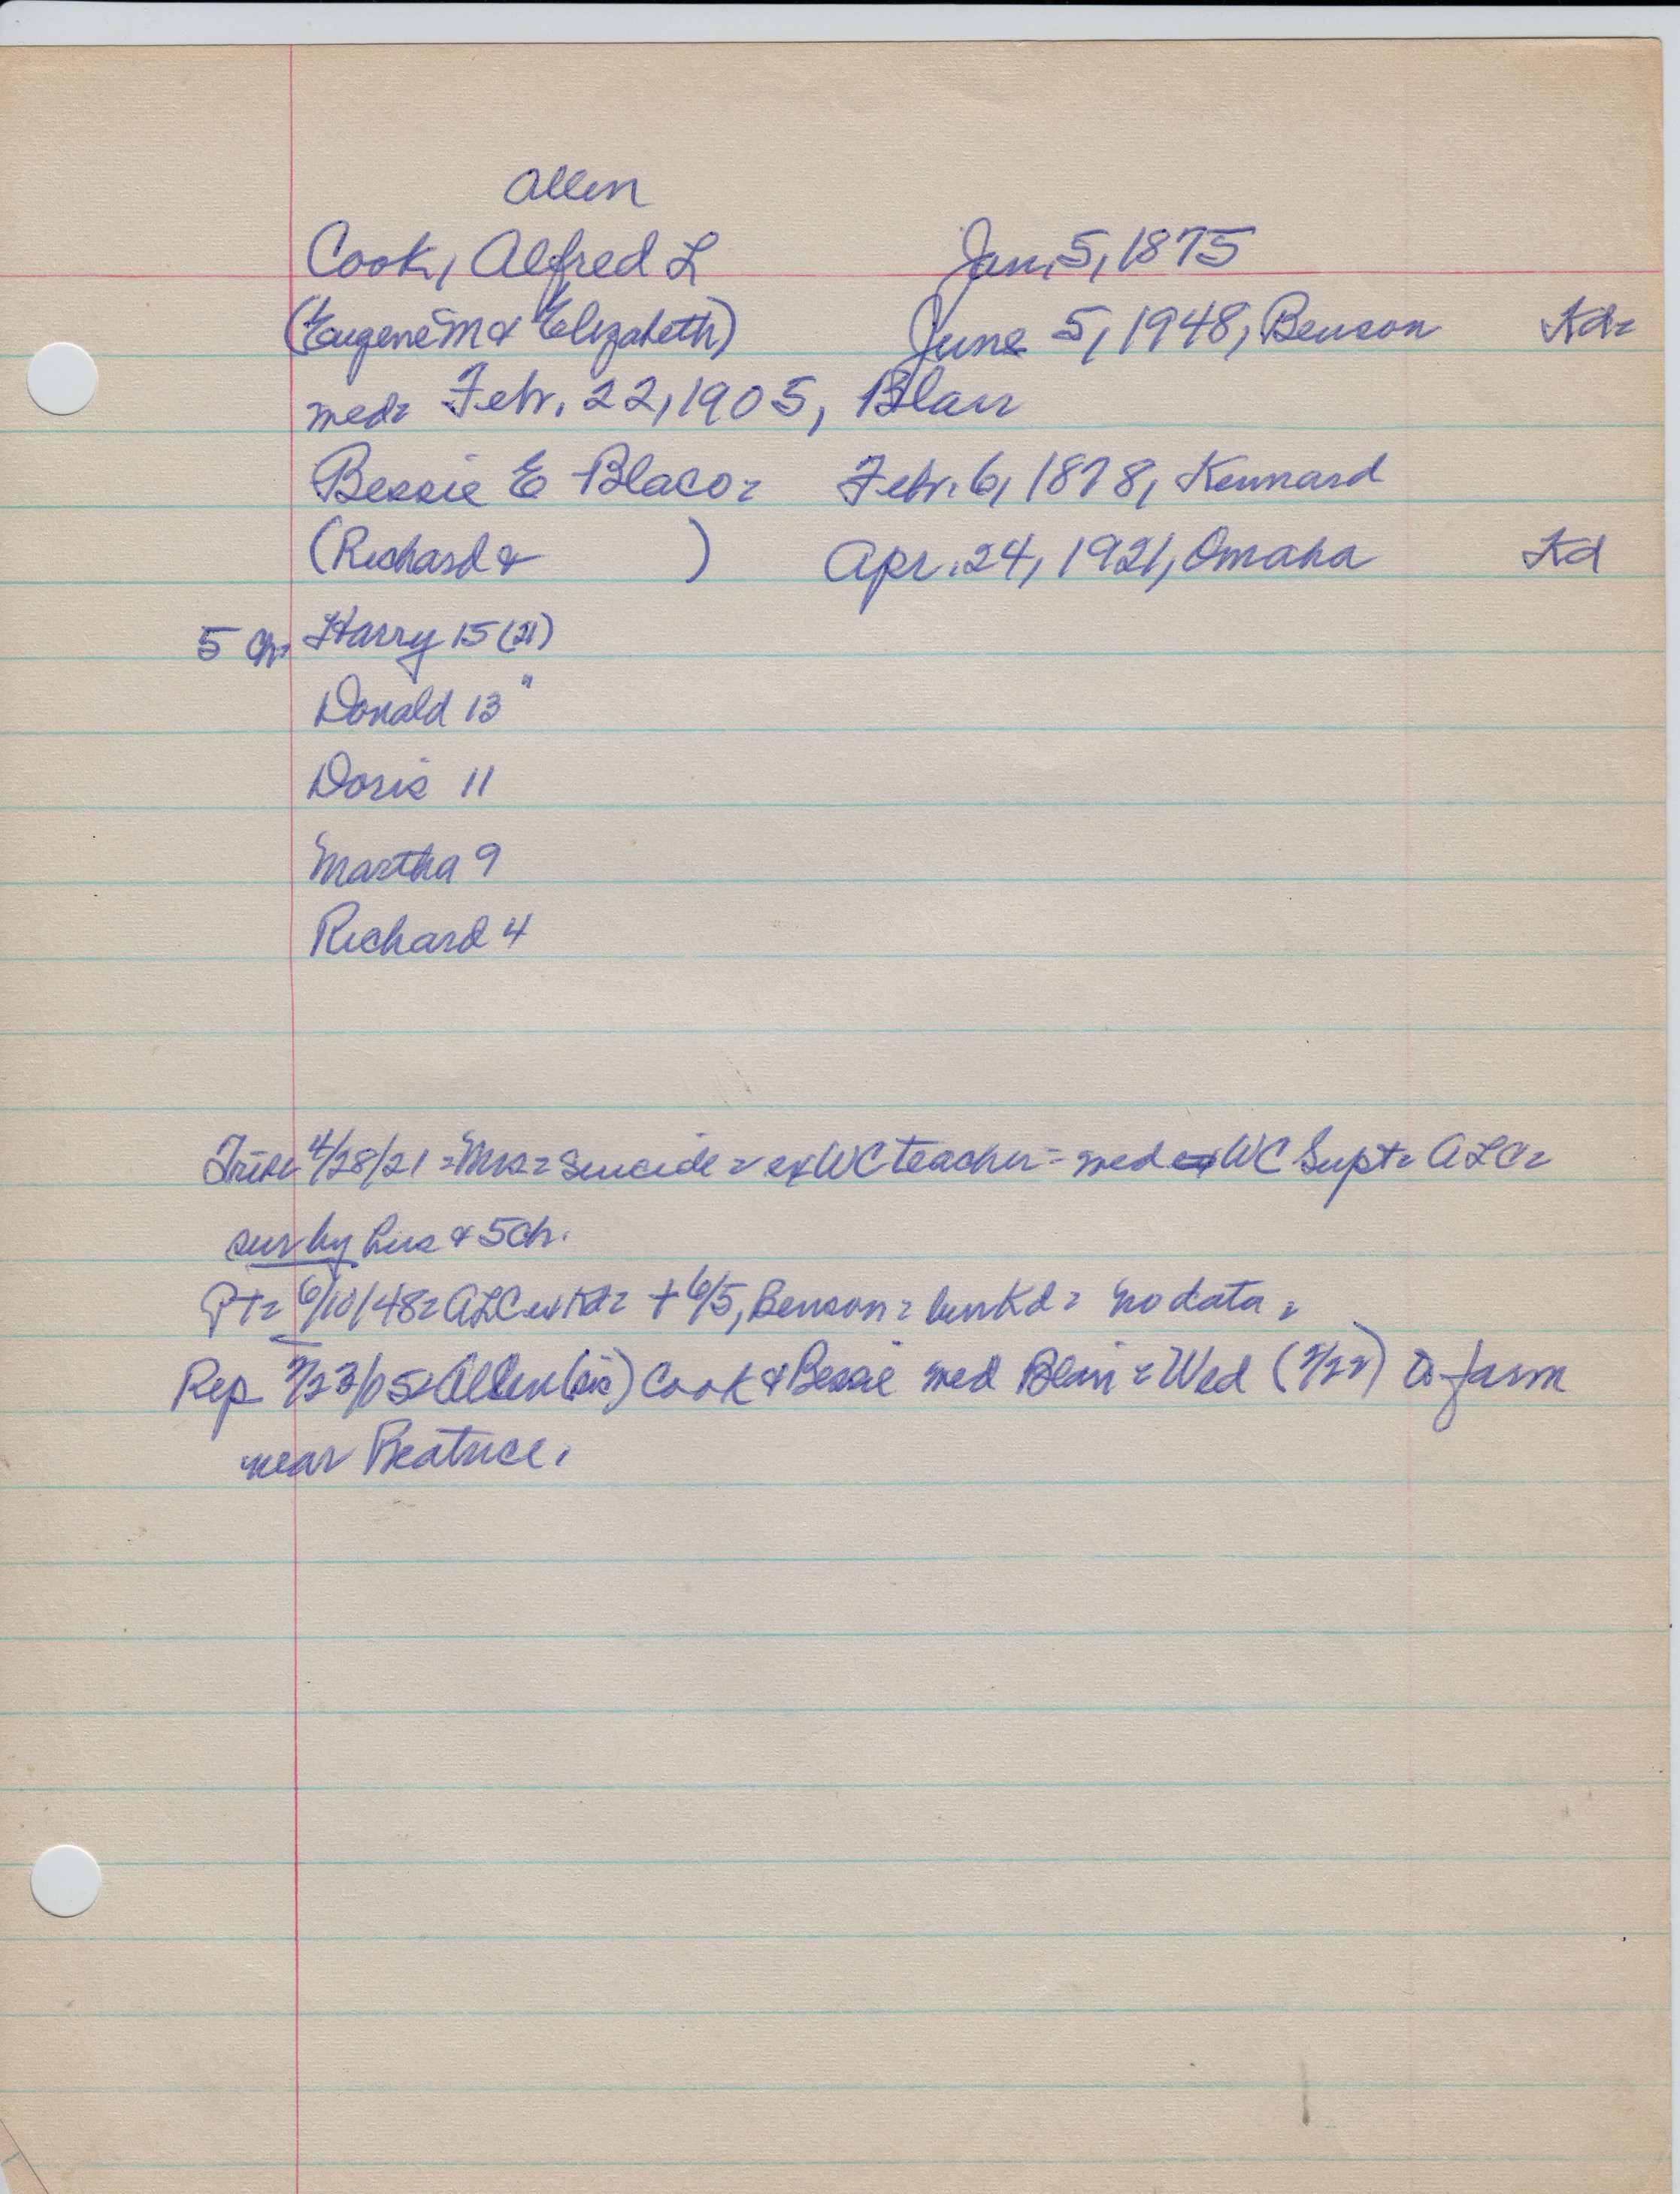 Allen
Cook, Alfred L Jan. 5, 1875
(Eugene M & Elizabeth) June 5, 1948, Benson Kd=
med= Febr. 22, 1905, Blair
Bessie E Blaco= Febr. 6, 1878, Kennard
(Richard & ) Apr. 24, 1921, Omaha Kd
5 ch= Harry 15 (21)
Donald 13 "
Doris 11
Martha 9
Richard 4
Trib= 4/28/21 = Mrs = suicide = ex WC teacher = med WC Supt= ALC=
sur by hus & 5 ch.
PT= 6/10/48= ALC + 6/5, Benson= bur Kd= no data=
Rep 2/23/05= Allen (sic) Cook & Bessie med Blair = Wed (2/22) to farm
near Beatrice.